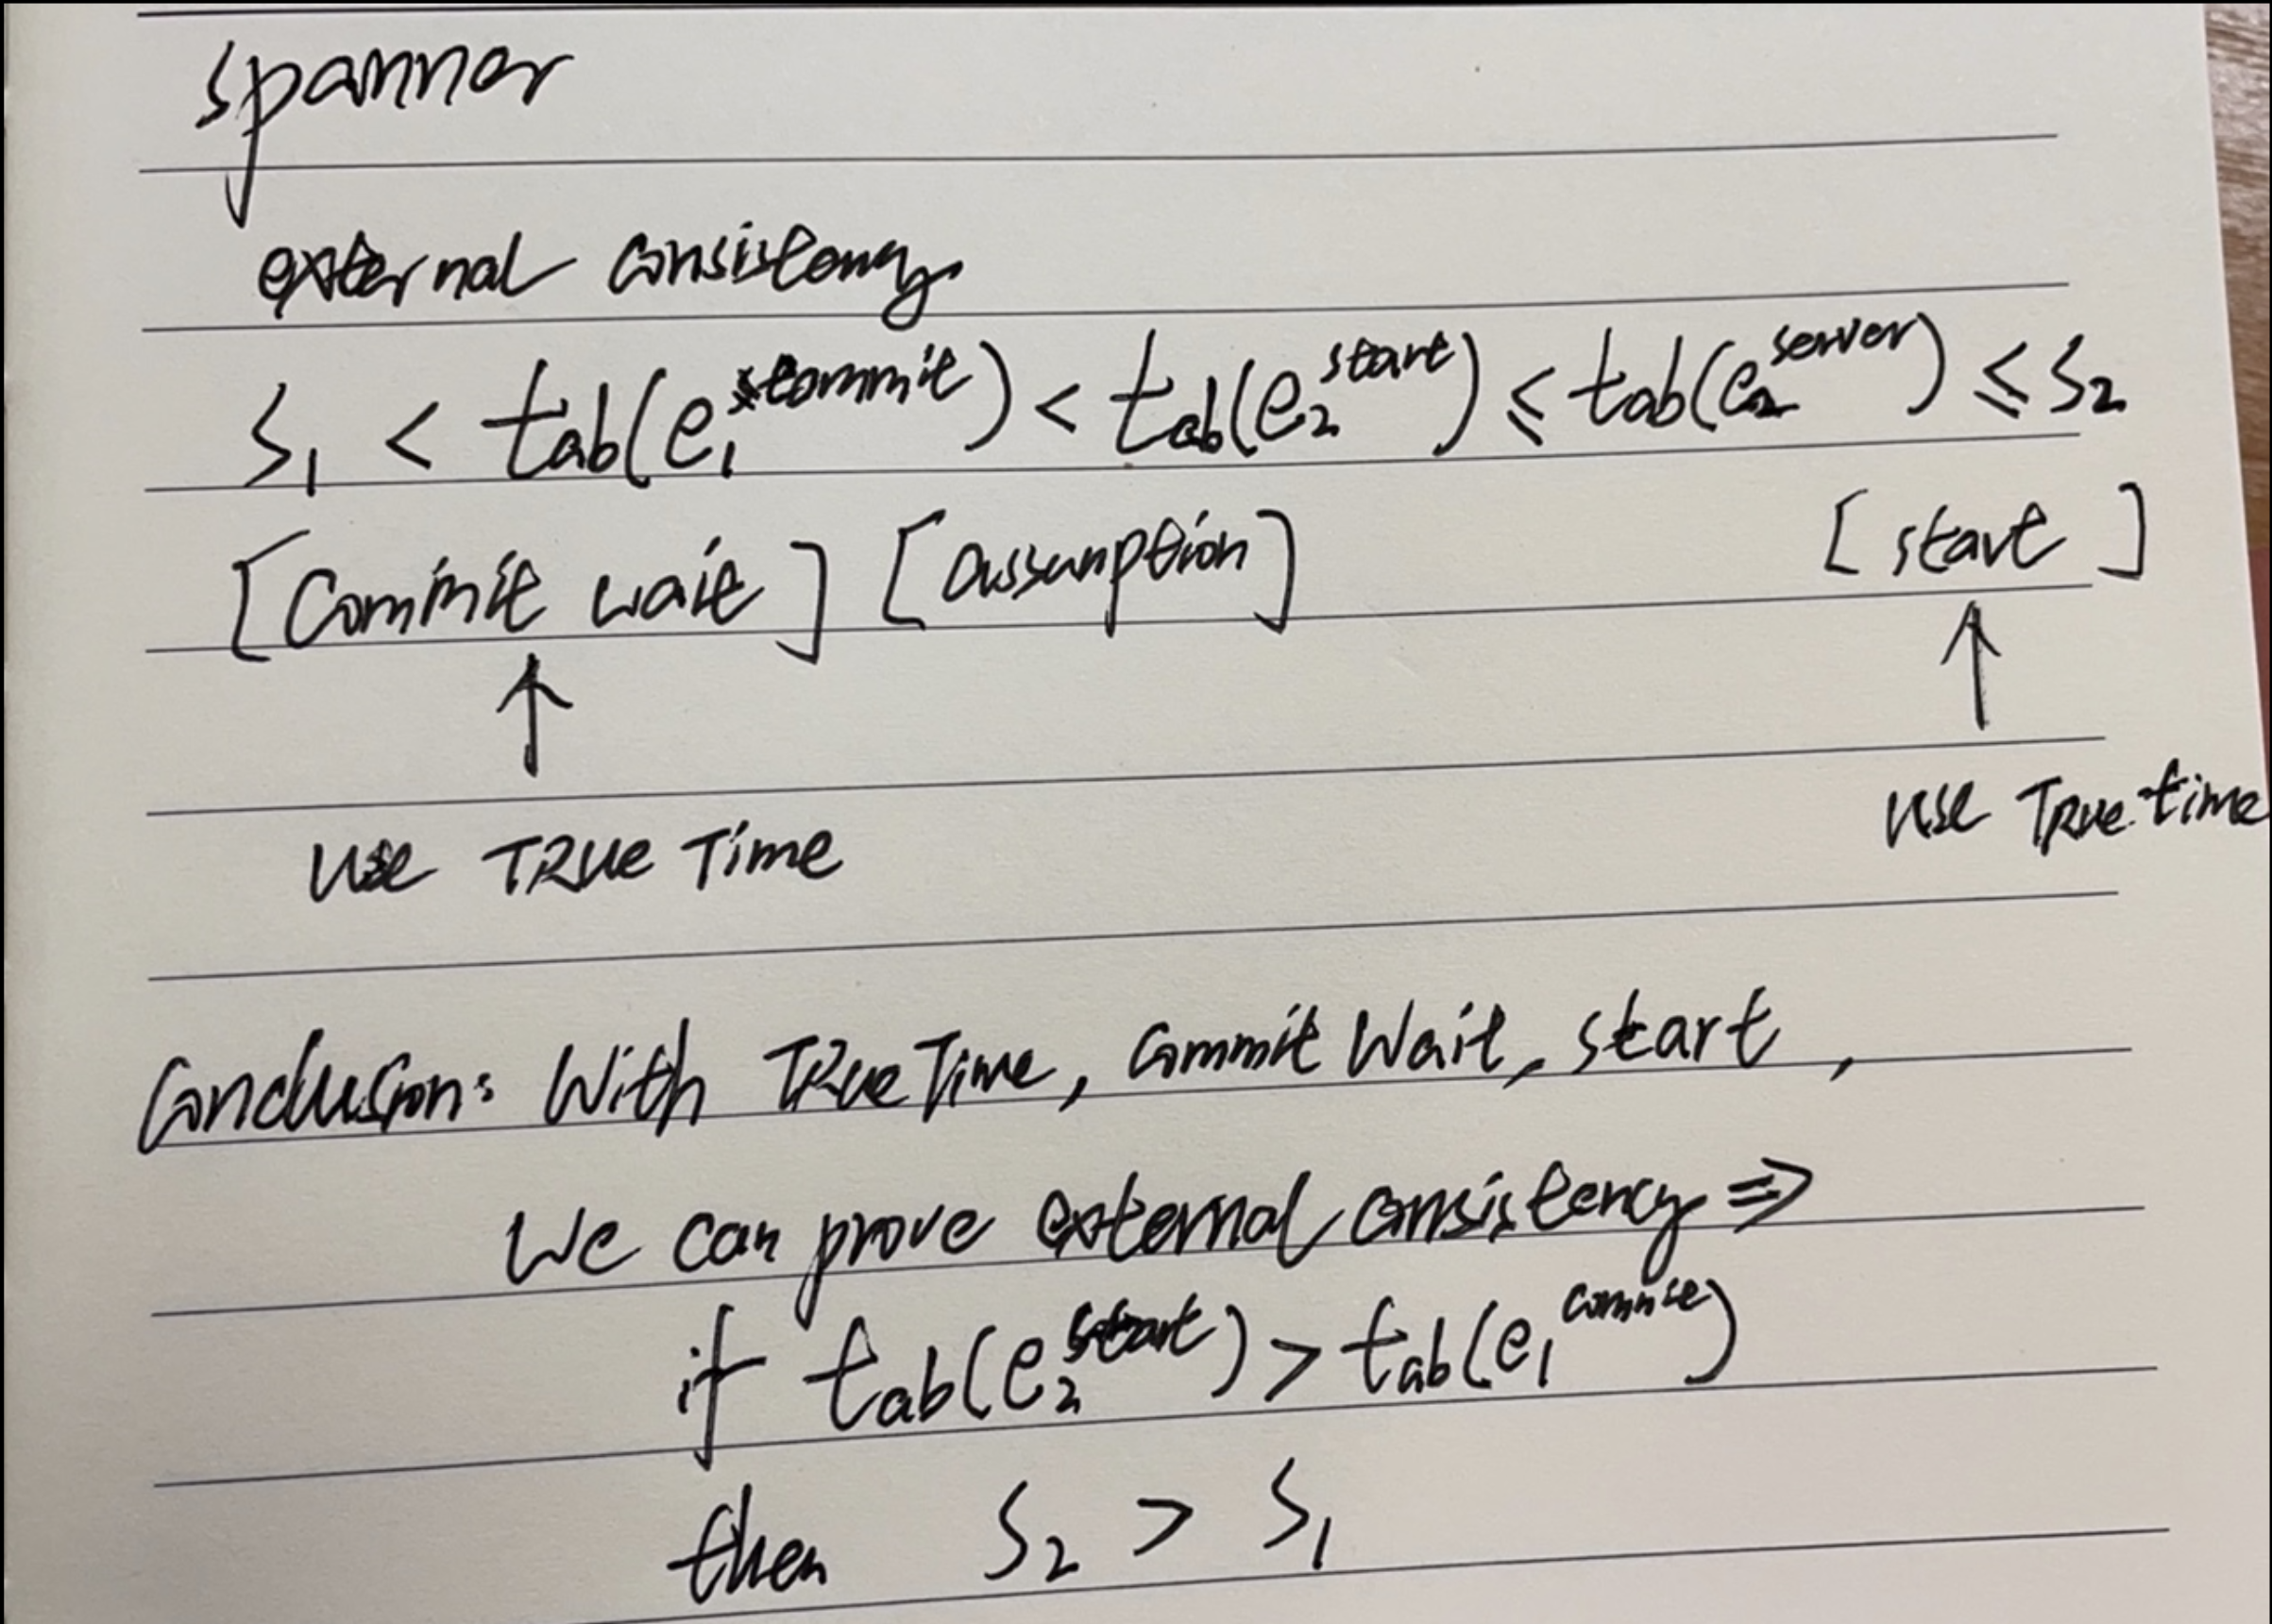 spanner
external consistency
S₁ < t_ab(e₁^commit) < t_ab(e₂^start) ≤ t_ab(e₂^server) ≤ S₂
[Commit wait] [assumption] [start]
↑ ↑
use TRUE Time use TRUE time
Conclusion: With TRUE Time, Commit Wait, start,
We can prove external consistency ⇒
if t_ab(e₂^start) > t_ab(e₁^commit)
then S₂ > S₁